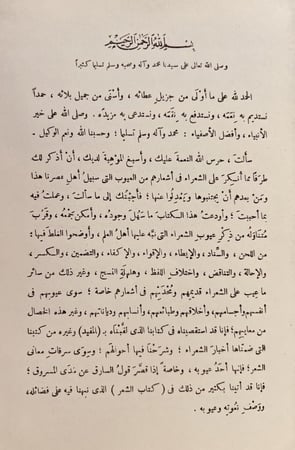 بسم الله الرحمن الرحيم
وصلى الله تعالى على سيدنا محمد وآله وصحبه وسلم تسليما كثيراً
الحمد لله على ما أَوْلَى من جزيل عطائه ، وأَسْنَى من جميل بلائه ، حمداً
نستديم به نِعَمَه ، ونستدفع به نِقَمَه ، ونستدعى به مزيدَه . وصلى الله على خير
الأنبياء ، وأفضل الأصفياء : محمد وآله وسلم تسليما ؛ وحسبنا الله ونعم الوكيل .
سألتَ ، حرس الله النعمة عليك ، وأسبغ الموْهِبة لديك ، أن أذكر لك
طرَفًا مما أُنكِرَ على الشعراء فى أشعارهم من العيوب التى سبيلُ أهلِ عصرنا هذا
ومَن بعدهم أن يجتنبوها ويَعْدِلوا عنها ؛ فأجبتُك إلى ما سألتَ ، وعملت فيه
بما أحببتَ ؛ وأودعتُ هذا الكتابَ ما سَهُل وجودُه ، وأمكن جَمْعُه ، وقَرُبَ
مُتناوَلُه من ذِكْر عيوب الشعراء التى نبَّه عليها أهلُ العلم ، وأوضحوا الغلطَ فيها :
من اللحن ، والسِّناد ، والإيطاء ، والإقواء ، والإكفاء ، والتضمين ، والكسر ،
والإحالة ، والتناقض ، واختلافِ اللفظ ، وهلهلةِ النسج ، وغير ذلك من سائر
ما عِيب على الشعراء قديمِهم ومُحْدَثِهم فى أشعارهم خاصة ؛ سوى عيوبهم فى
أنفسهم وأجسامهم ، وأخلاقهم وطبائعهم ، وأنسابهم وديانا‌تهم ، وغير هذه الخصال
من معايبهم ؛ فإنا قد استقصيناه فى كتابنا الذى لقَّبْناه بـ (المفيد) وغيره من كتبنا
التى ضمنَّاها أخبارَ الشعراء ؛ وشرحْنا فيها أحوالَهم ؛ وسِوَى سرقاتِ معانى
الشعر ؛ فإنها أحَدُ عيوبه ، وخاصةً إذا قصَّر قولُ السارق عن مَدَى المسروق ؛
فإنا قد أتينا بكثير من ذلك فى ( كتاب الشعر ) الذى نبهنا فيه على فضائله ،
ووَصْفِ نُعوتِه وعيوبه .